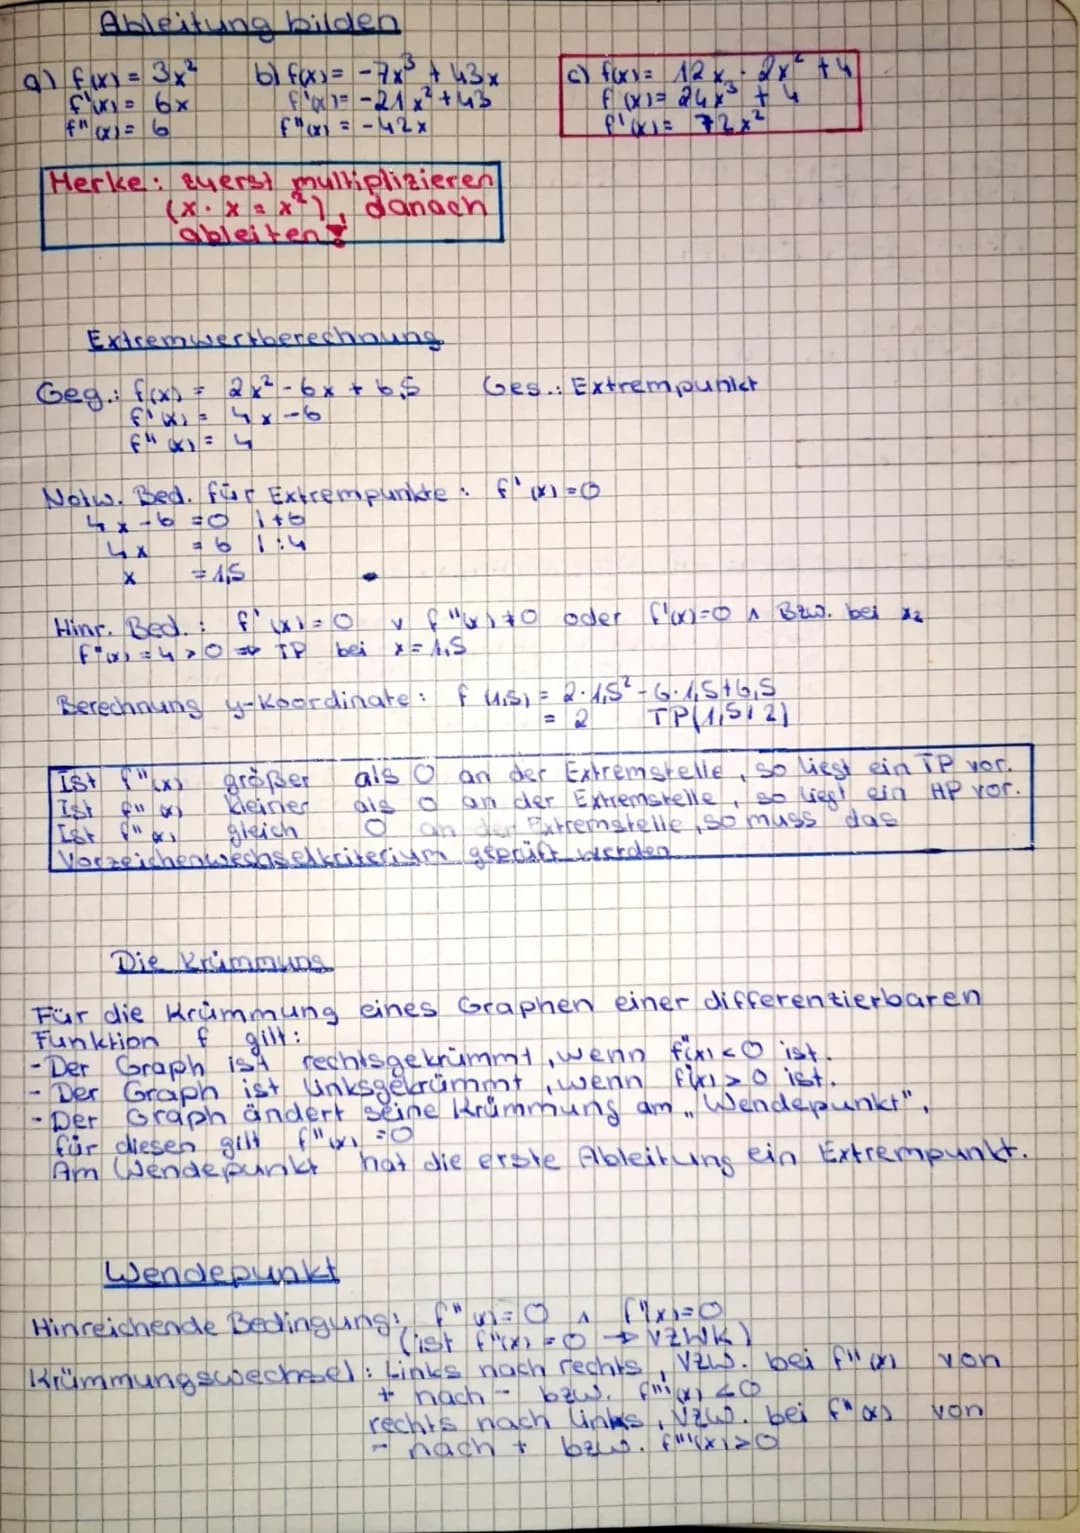 Ableitung bilden
a) f(x) = 3x²
f'(x) = 6x
f''(x) = 6
b) f(x) = -7x³ + 43x
f'(x) = -21x² + 43
f''(x) = -42x
c) f(x) = 12x · 2x² + 4
f(x) = 24x³ + 4
f'(x) = 72x²
Merke: zuerst multiplizieren
(x · x = x²), danach
ableiten!
Extremwertberechnung
Geg.: f(x) = 2x² - 6x + 6,5 Ges.: Extrempunkt
f'(x) = 4x - 6
f''(x) = 4
Notw. Bed. für Extrempunkte: f'(x) = 0
4x - 6 = 0 | +6
4x = 6 | :4
x = 1,5
Hinr. Bed.: f'(x) = 0 v f''(x) ≠ 0 oder f'(x) = 0 ∧ Bzw. bei
f''(x) = 4 > 0 => TP bei x = 1,5
Berechnung y-Koordinate: f(1,5) = 2·1,5² - 6·1,5 + 6,5
= 2 TP(1,5 | 2)
Ist f''(x) größer als 0 an der Extremstelle, so liegt ein TP vor.
Ist f''(x) kleiner als 0 an der Extremstelle, so liegt ein HP vor.
Ist f''(x) gleich 0 an der Extremstelle, so muss das
Vorzeichenwechselkriterium geprüft werden
Die Krümmung
Für die Krümmung eines Graphen einer differentierbaren
Funktion f gilt:
- Der Graph ist rechtsgekrümmt, wenn f''(x) < 0 ist.
- Der Graph ist linksgekrümmt, wenn f''(x) > 0 ist.
- Der Graph ändert seine Krümmung am „Wendepunkt",
für diesen gilt f''(x) = 0
Am Wendepunkt hat die erste Ableitung ein Extrempunkt.
Wendepunkt
Hinreichende Bedingung: f''(x) = 0 ∧ f'''(x) = 0
(ist f'''(x) = 0 → VZWK)
Krümmungswechsel: Links nach rechts, VZW. bei f''(x) von
+ nach - bzw. f'''(x) < 0
rechts nach links, VZW. bei f''(x) von
- nach + bzw. f'''(x) > 0